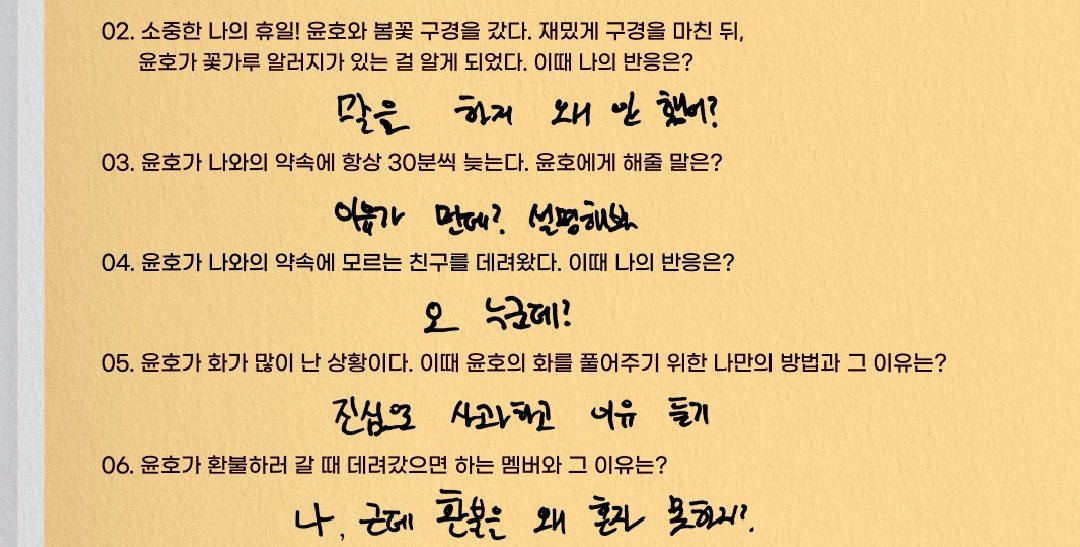 02. 소중한 나의 휴일! 윤호와 봄꽃 구경을 갔다. 재밌게 구경을 마친 뒤,
윤호가 꽃가루 알러지가 있는 걸 알게 되었다. 이때 나의 반응은?
말을 하지 왜 안 했어?
03. 윤호가 나와의 약속에 항상 30분씩 늦는다. 윤호에게 해줄 말은?
이유가 뭔데? 설명해봐
04. 윤호가 나와의 약속에 모르는 친구를 데려왔다. 이때 나의 반응은?
오 누군데?
05. 윤호가 화가 많이 난 상황이다. 이때 윤호의 화를 풀어주기 위한 나만의 방법과 그 이유는?
진심으로 사과하고 이유 듣기
06. 윤호가 환불하러 갈 때 데려갔으면 하는 멤버와 그 이유는?
나, 근데 환불은 왜 혼자 못하지?.